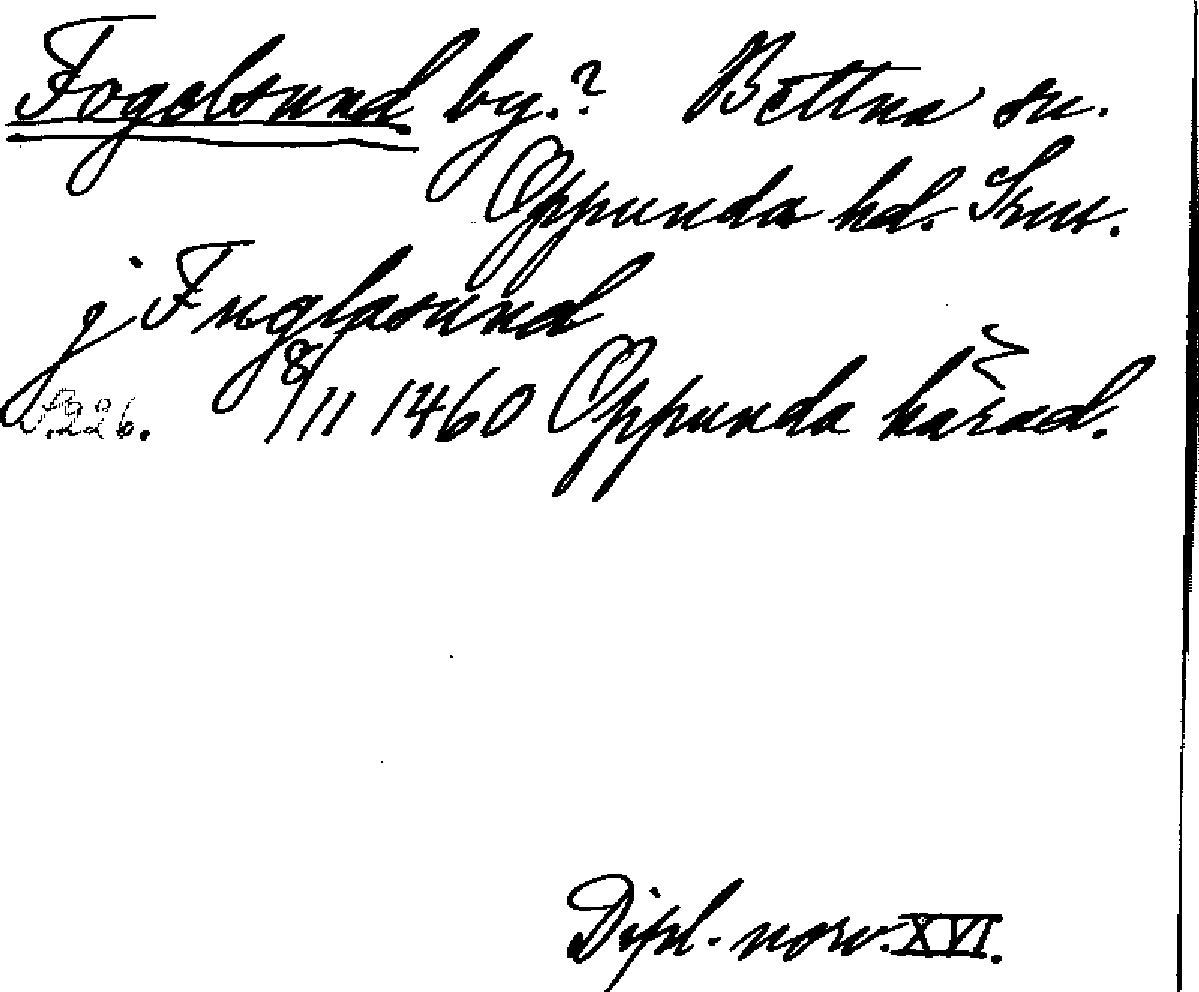 Fogelsund by.? Bettna sn.
Oppunda hd. Srm.
j Fuglasund
S. 226. 8/11 1460 Oppunda härad.
Dipl. norv. XVI.